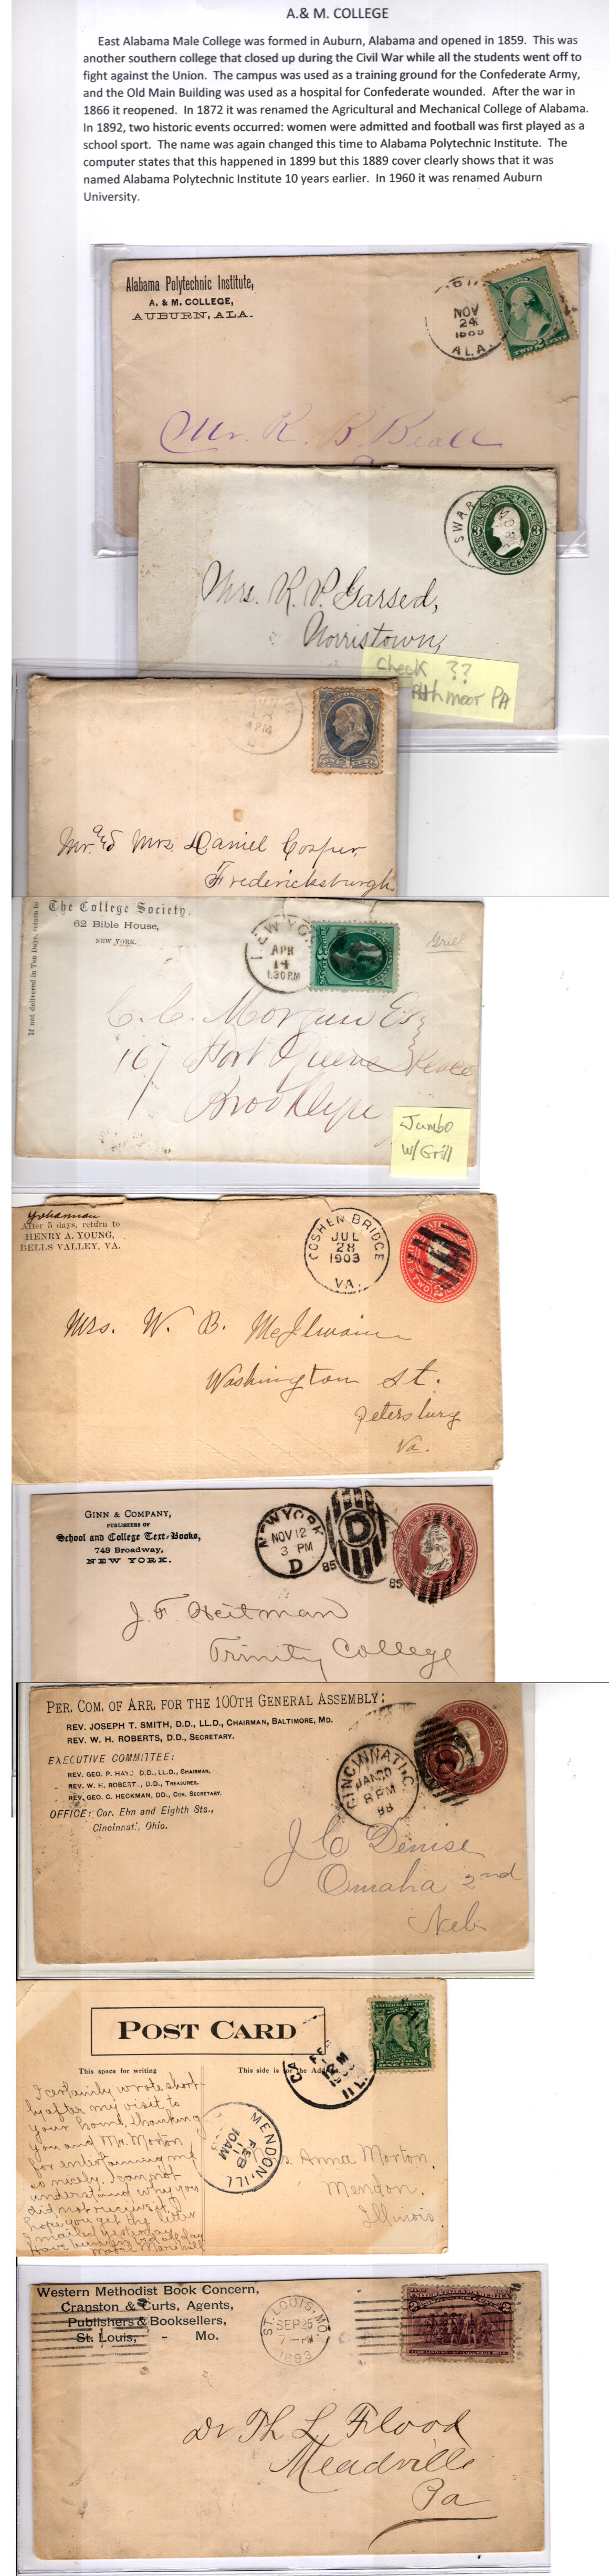 A.& M. COLLEGE
East Alabama Male College was formed in Auburn, Alabama and opened in 1859. This was
another southern college that closed up during the Civil War while all the students went off to
fight against the Union. The campus was used as a training ground for the Confederate Army,
and the Old Main Building was used as a hospital for Confederate wounded. After the war in
1866 it reopened. In 1872 it was renamed the Agricultural and Mechanical College of Alabama.
In 1892, two historic events occurred: women were admitted and football was first played as a
school sport. The name was again changed this time to Alabama Polytechnic Institute. The
computer states that this happened in 1899 but this 1889 cover clearly shows that it was
named Alabama Polytechnic Institute 10 years earlier. In 1960 it was renamed Auburn
University.
Alabama Polytechnic Institute,
A. & M. COLLEGE,
AUBURN, ALA.
NOV
24
ALA.
TWO CENTS
Mr. R. B. Beall
U.S. POSTAGE
3 3
SWAR MORE
Mrs. R. P. Garsed,
Norristown,
Check ??
PA
4 PM
Mr. and Mrs. Daniel Cosper,
Fredericksburgh
If not delivered in Ten Days, return to
The College Society,
62 Bible House,
NEW YORK.
NEW YO
APR
14
1.30 PM
Grill
C. C. Morgan Esq
167 Fort Greene Place
Brooklyn
Jumbo
W/ Grill
After 5 days, return to
HENRY A. YOUNG,
BELLS VALLEY, VA.
GOSHEN BRIDGE
JUL
28
1903
VA.
TWO
2
Mrs. W. B. McIlwaine
Washington St.
Petersburg
Va.
GINN & COMPANY,
PUBLISHERS OF
School and College Text-Books,
743 Broadway,
NEW YORK.
NEW YORK
NOV 12
3 PM
D
85
D
85
J. F. Heitman
Trinity College
PER. COM. OF ARR. FOR THE 100TH GENERAL ASSEMBLY:
REV. JOSEPH T. SMITH, D.D., LL.D., CHAIRMAN, BALTIMORE, MD.
REV. W. H. ROBERTS, D.D., SECRETARY.
EXECUTIVE COMMITTEE:
REV. GEO. P. HAYS D.D., LL.D., CHAIRMAN.
REV. W. H. ROBERTS, D.D., TREASURER.
REV. GEO. C. HECKMAN, DD., COR. SECRETARY.
OFFICE: Cor. Elm and Eighth Sts.,
Cincinnati, Ohio.
CINCINNATI, O.
JAN 30
8 PM
88
J C Denise
Omaha 2nd
Neb
POST CARD
This space for writing
This side is for the Address
CA
FEB
ILL.
1 1
MENDON, ILL.
FEB
11
10AM
I certainly wrote short-
ly after my visit to
your home, thanking
you and Mr. Morton
for entertaining me
so nicely. I can not
understand why you
did not receive it. I
hope you get the letter
I mailed yesterday.
Have been in bed all day
Mrs. Anna Morton.
Mendon.
Illinois.
Western Methodist Book Concern,
Cranston & Curts, Agents,
Publishers & Booksellers,
St. Louis, - Mo.
ST. LOUIS, MO.
SEP 25
7 - PM
1893
2 2
Dr Th L. Flood
Meadville
Pa